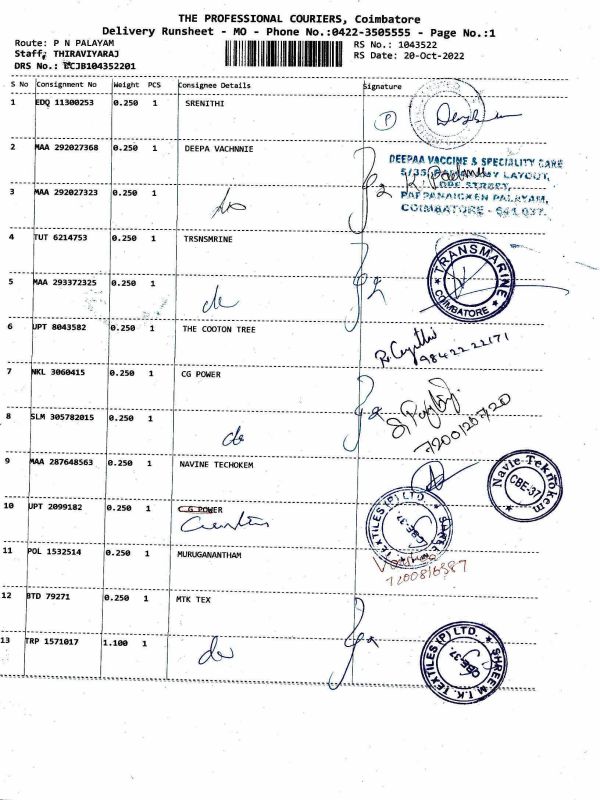 THE PROFESSIONAL COURIERS, Coimbatore
Delivery Runsheet - MO - Phone No.:0422-3505555 - Page No.:1
Route: P N PALAYAM
RS No.: 1043522
Staff: THIRAVIYARAJ
RS Date: 20-Oct-2022
DRS No.: ECJB104352201
S No Consignment No Weight PCS Consignee Details Signature
1 EDQ 11300253 0.250 1 SRENITHI
2 MAA 292027368 0.250 1 DEEPA VACHNNIE
DEEPAA VACCINE & SPECIALITY CARE
LAYOUT,
STREET,
PAPPANAICKEN PALAYAM,
COIMBATORE - 641 037.
3 MAA 292027323 0.250 1 do
4 TUT 6214753 0.250 1 TRSNSMRINE
TRANSMARINE
COIMBATORE
5 MAA 293372325 0.250 1 do
6 UPT 8043582 0.250 1 THE COOTON TREE
98422 22171
7 NKL 3060415 0.250 1 CG POWER
7200126720
8 SLM 305782015 0.250 1 do
9 MAA 287648563 0.250 1 NAVINE TECHOKEM
Navie-Teknokem
CBE-37
10 UPT 2099182 0.250 1 C G POWER
SHREE TEXTILES (P) LTD.
CBE-37.
11 POL 1532514 0.250 1 MURUGANANTHAM
7200816387
12 BTD 79271 0.250 1 MTK TEX
13 TRP 1571017 1.100 1 do
SHREE M.T.K. TEXTILES (P) LTD.
CBE-37.